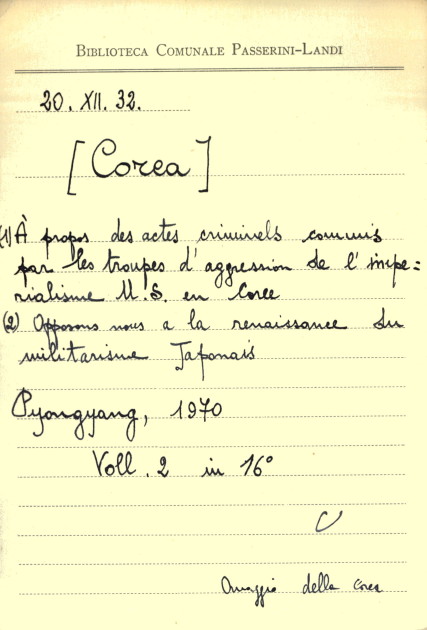 BIBLIOTECA COMUNALE PASSERINI-LANDI
20. XII. 32.
[Corea]
(1) À propos des actes criminels commis
par les troupes d'aggression de l'impe=
rialisme U.S. en Coree
(2) Opposons nous a la renaissance du
militarisme Japonais
Pyongyang, 1970
Voll. 2 in 16°
C
Omaggio della Corea